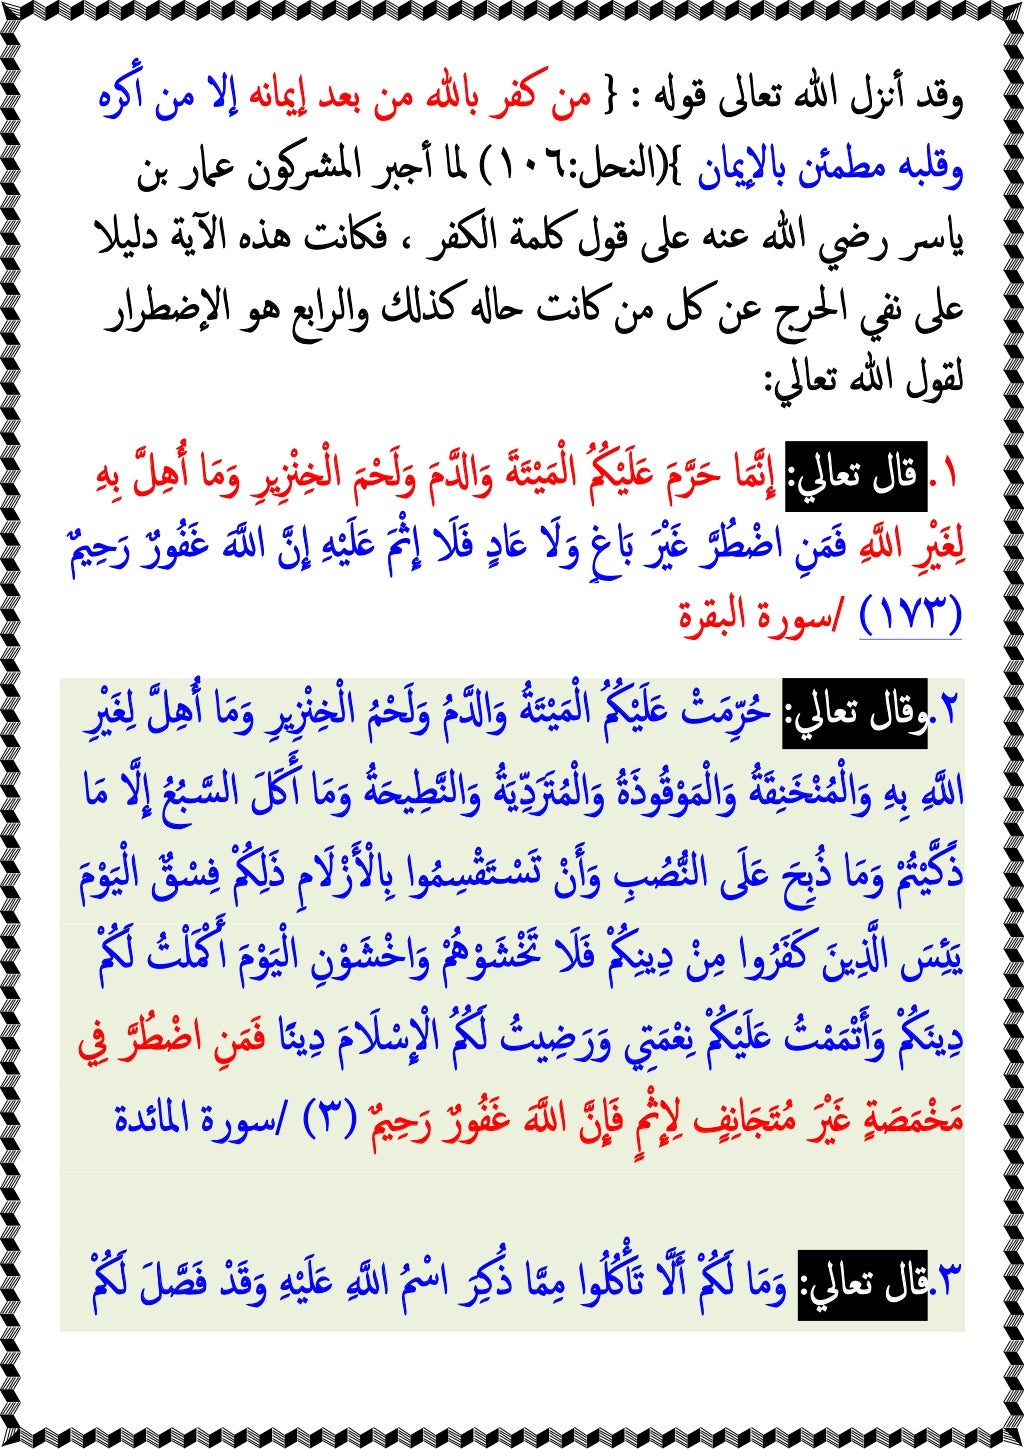 وقد أنزل الله تعالى قوله : { من كفر بالله من بعد إيمانه إلا من أكره
وقلبه مطمئن بالإيمان }(النحل:١٠٦) لما أجبر المشركون عمار بن
ياسر رضي الله عنه على قول كلمة الكفر ، فكانت هذه الآية دليلا
على نفي الحرج عن كل من كانت حاله كذلك والرابع هو الإضطرار
لقول الله تعالي:
١. قال تعالي: إِنَّمَا حَرَّمَ عَلَيْكُمُ الْمَيْتَةَ وَالدَّمَ وَلَحْمَ الْخِنْزِيرِ وَمَا أُهِلَّ بِهِ
لِغَيْرِ اللَّهِ فَمَنِ اضْطُرَّ غَيْرَ بَاغٍ وَلَا عَادٍ فَلَا إِثْمَ عَلَيْهِ إِنَّ اللَّهَ غَفُورٌ رَحِيمٌ
(١٧٣) /سورة البقرة
٢.وقال تعالي: حُرِّمَتْ عَلَيْكُمُ الْمَيْتَةُ وَالدَّمُ وَلَحْمُ الْخِنْزِيرِ وَمَا أُهِلَّ لِغَيْرِ
اللَّهِ بِهِ وَالْمُنْخَنِقَةُ وَالْمَوْقُوذَةُ وَالْمُتَرَدِّيَةُ وَالنَّطِيحَةُ وَمَا أَكَلَ السَّبُعُ إِلَّا مَا
ذَكَّيْتُمْ وَمَا ذُبِحَ عَلَى النُّصُبِ وَأَنْ تَسْتَقْسِمُوا بِالْأَزْلَامِ ذَلِكُمْ فِسْقٌ الْيَوْمَ
يَئِسَ الَّذِينَ كَفَرُوا مِنْ دِينِكُمْ فَلَا تَخْشَوْهُمْ وَاخْشَوْنِ الْيَوْمَ أَكْمَلْتُ لَكُمْ
دِينَكُمْ وَأَتْمَمْتُ عَلَيْكُمْ نِعْمَتِي وَرَضِيتُ لَكُمُ الْإِسْلَامَ دِينًا فَمَنِ اضْطُرَّ فِي
مَخْمَصَةٍ غَيْرَ مُتَجَانِفٍ لِإِثْمٍ فَإِنَّ اللَّهَ غَفُورٌ رَحِيمٌ (٣) /سورة المائدة
٣.قال تعالي: وَمَا لَكُمْ أَلَّا تَأْكُلُوا مِمَّا ذُكِرَ اسْمُ اللَّهِ عَلَيْهِ وَقَدْ فَصَّلَ لَكُمْ